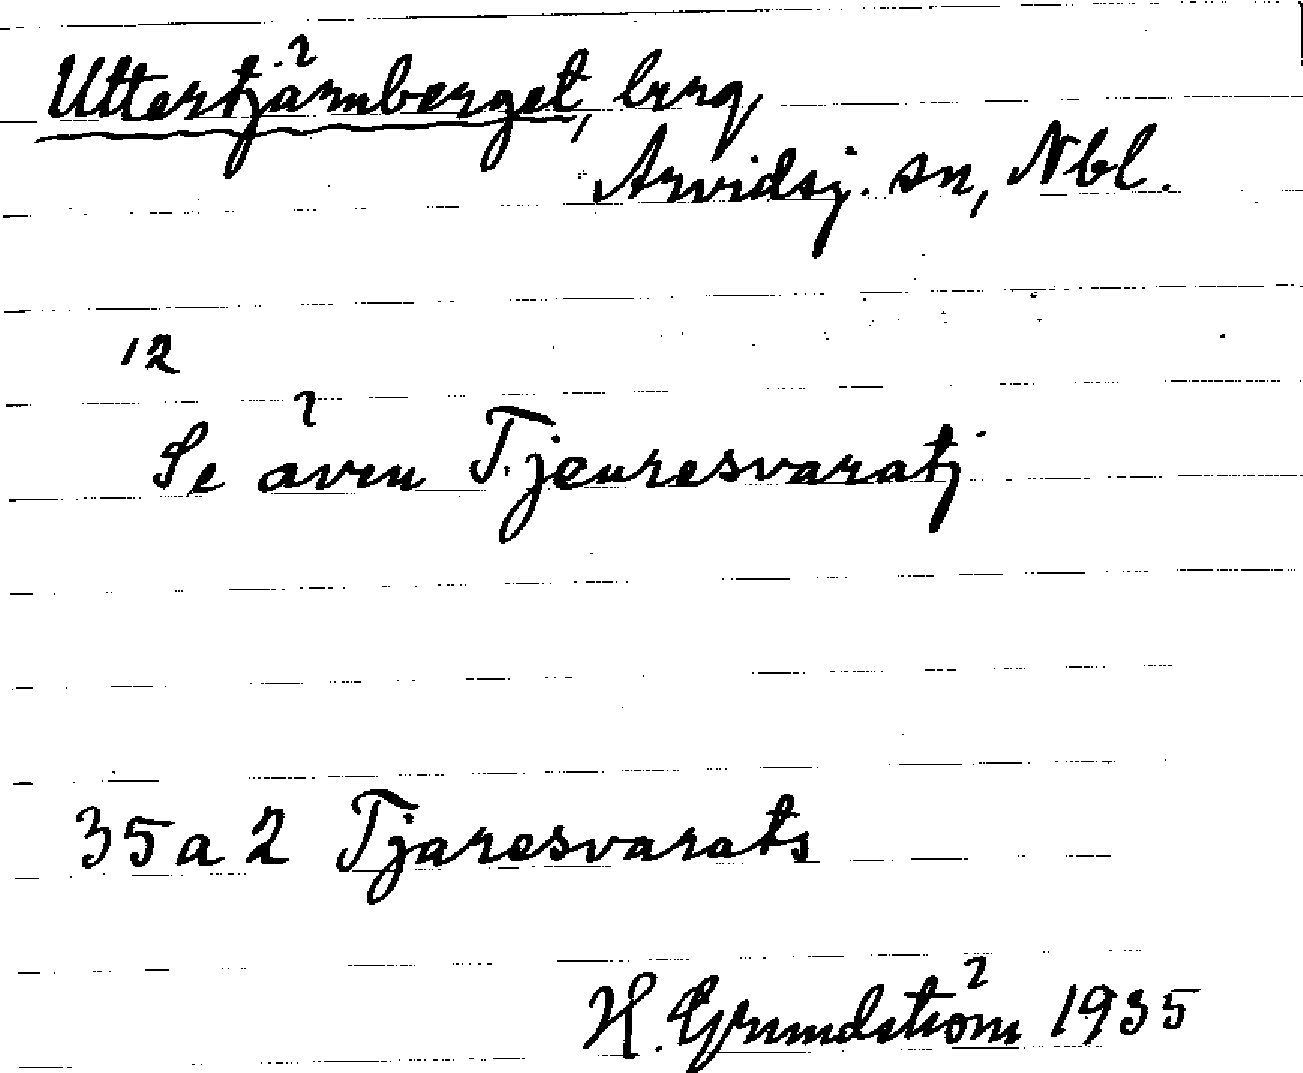 Uttertjärnberget, berg,
Arvidsj. sn, Nbl.
12
Se även Tjeuresvaratj
35a2 Tjaresvarats
H. Grundström 1935